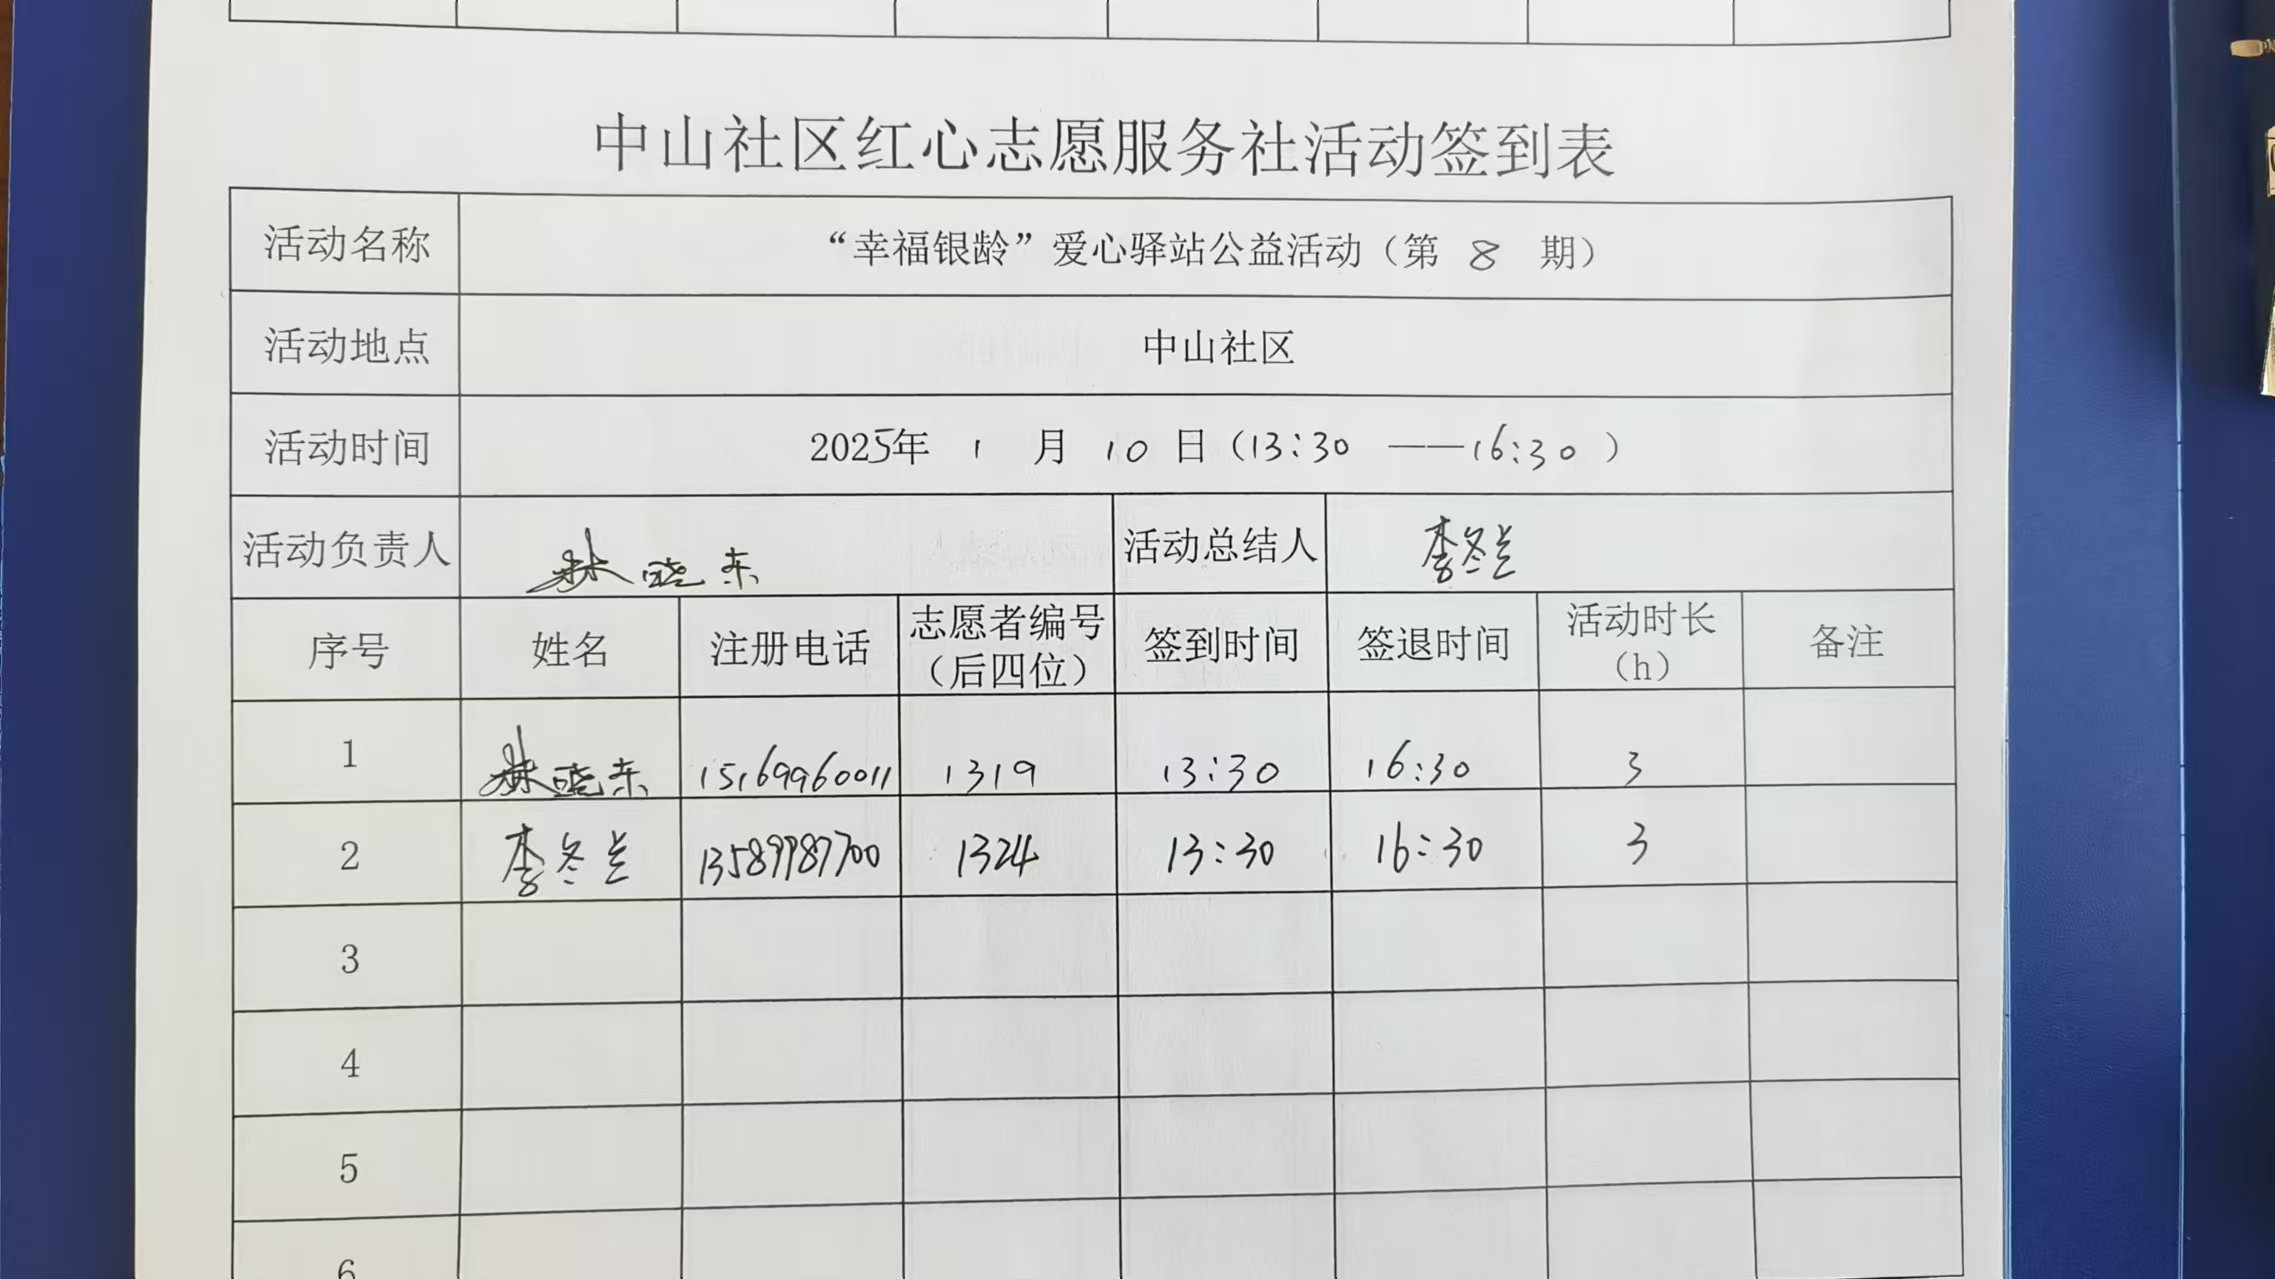 中山社区红心志愿服务社活动签到表
活动名称 “幸福银龄”爱心驿站公益活动（第 8 期）
活动地点 中山社区
活动时间 2025年 1 月 10 日（13:30 ——16:30 ）
活动负责人 林晓东 活动总结人 李冬兰
序号 姓名 注册电话 志愿者编号（后四位） 签到时间 签退时间 活动时长（h） 备注
1 林晓东 15169960011 1319 13:30 16:30 3
2 李冬兰 13589987700 1324 13:30 16:30 3
3
4
5
6